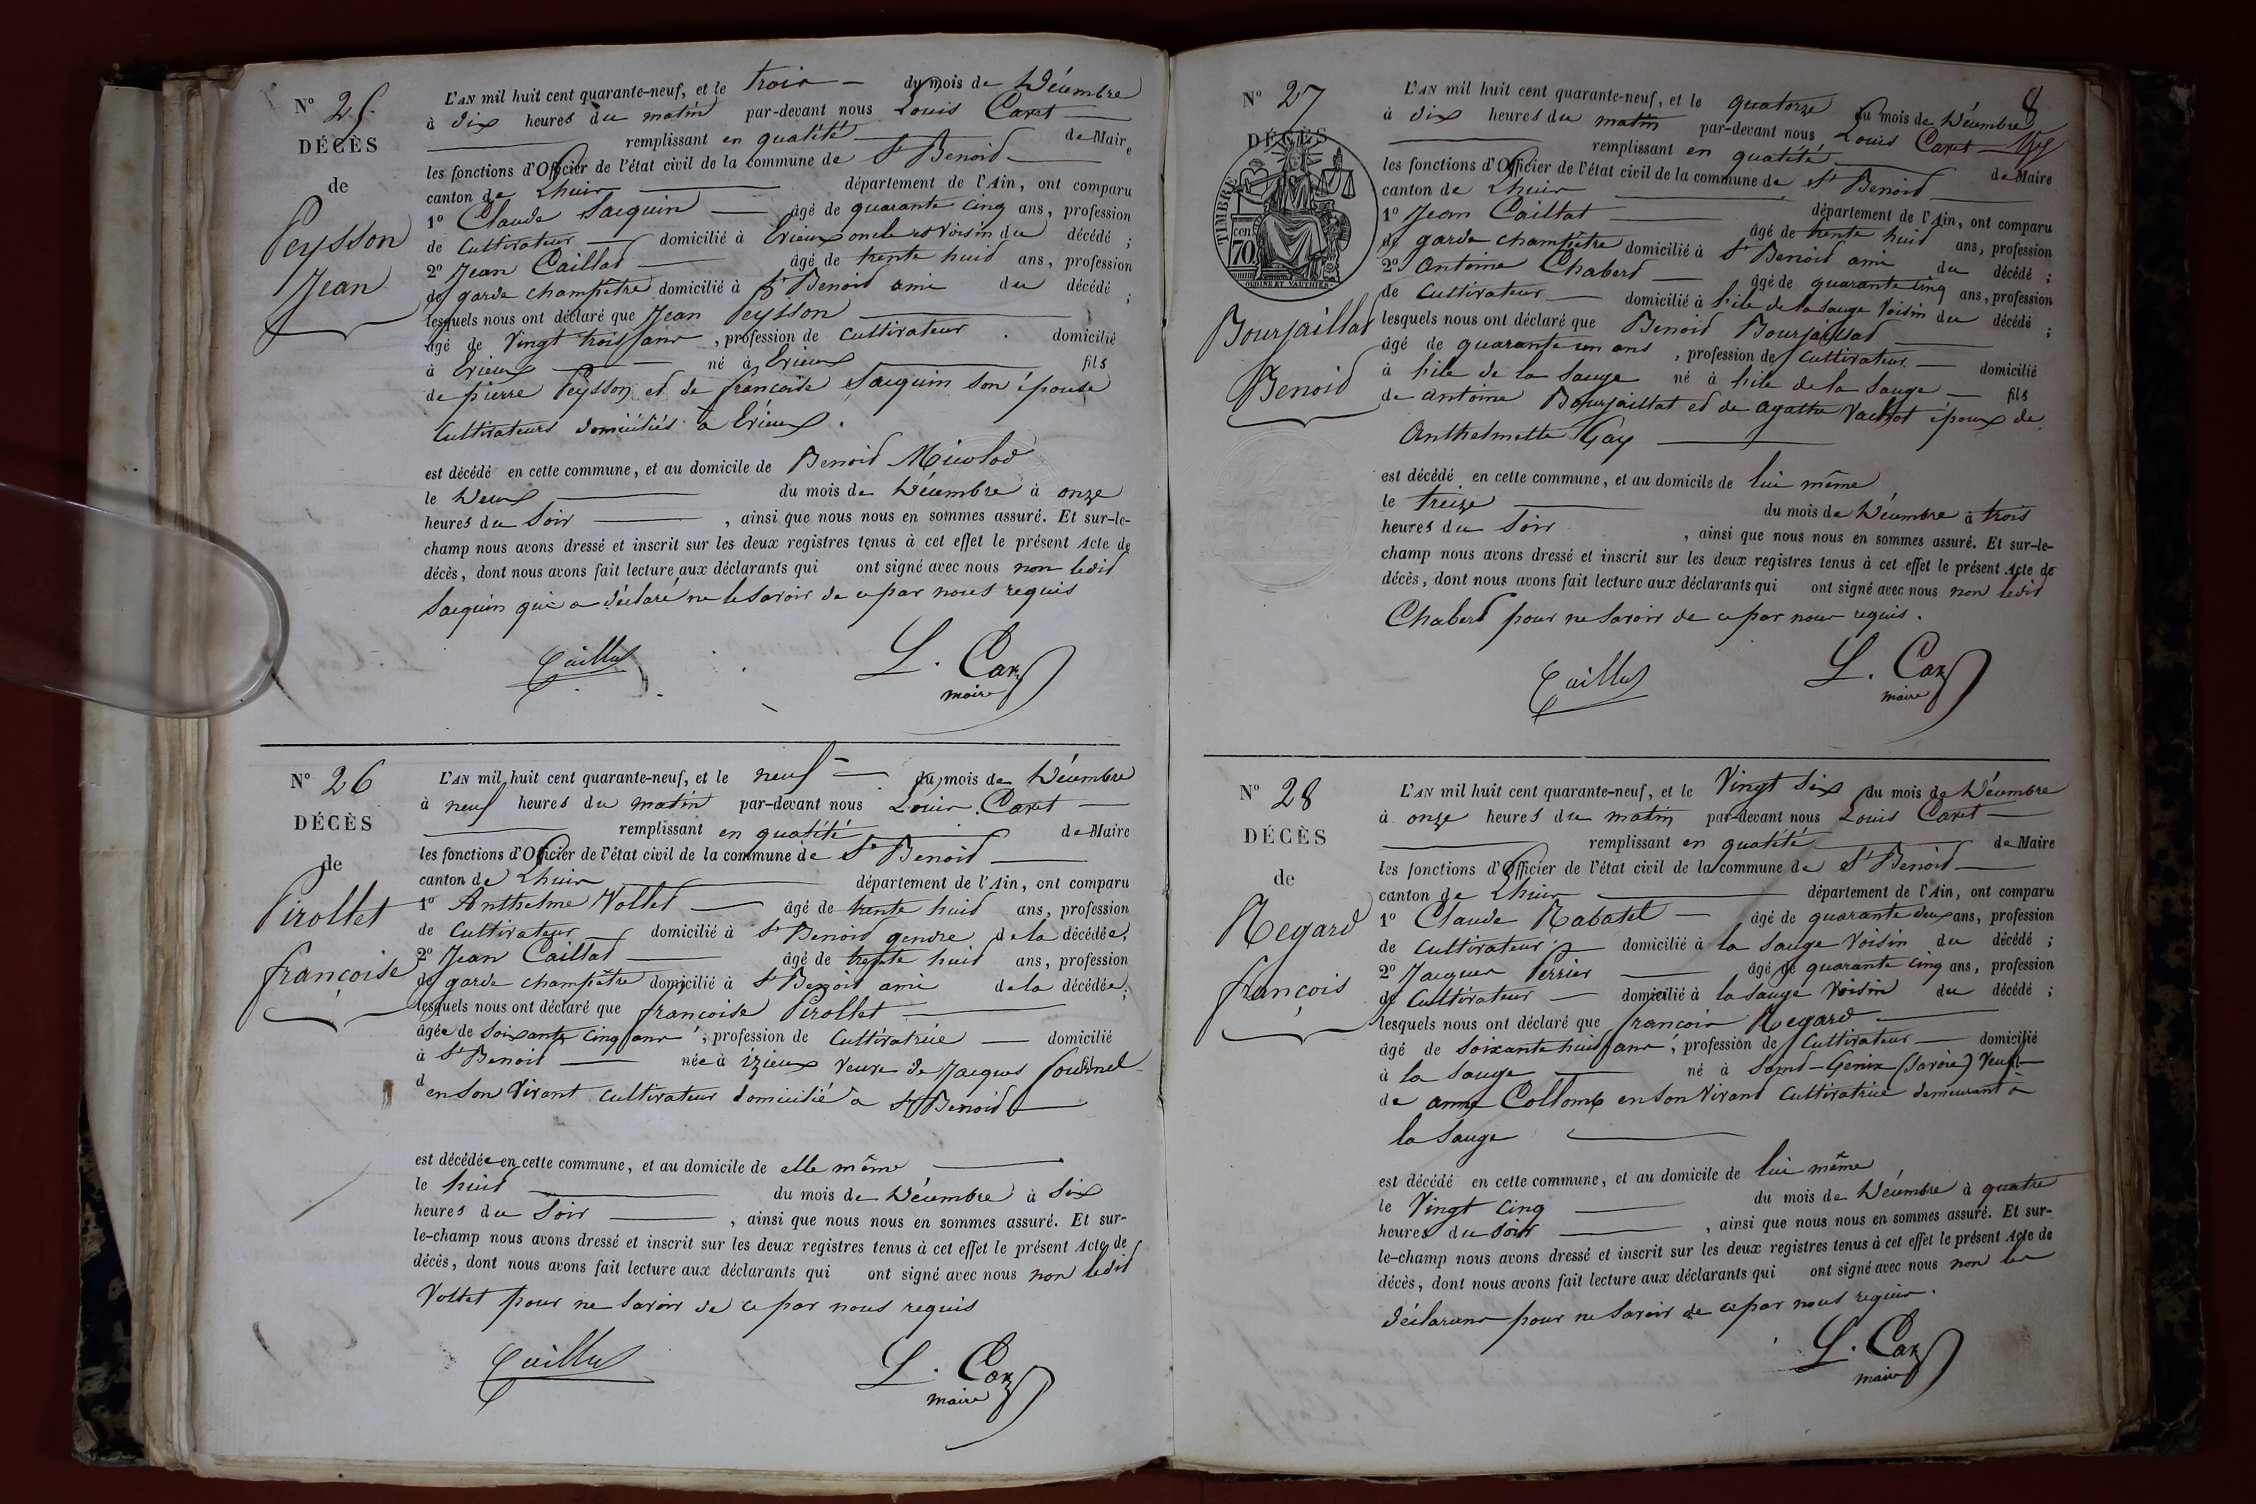 N° 25
DÉCÈS
de
Peysson
Jean
L'AN mil huit cent quarante-neuf, et le trois du mois de Décembre
à dix heures du matin par-devant nous Louis Caret
remplissant en qualité de Maire
les fonctions d'Officier de l'état civil de la commune de St Benoid
canton de Lhuis département de l'Ain, ont comparu
1° Claude Saequin âgé de quarante cinq ans, profession
de Cultivateur domicilié à Evieux oncle et voisin du décédé ;
2° Jean Caillat âgé de trente huid ans, profession
de garde champêtre domicilié à St Benoid ami du décédé ;
lesquels nous ont déclaré que Jean Peysson
âgé de Vingt trois ans, profession de Cultivateur domicilié
à Evieux né à Evieux fils
de pierre Peysson et de francoise Saequin son épouse
Cultivateurs domiciliés à Evieux.
est décédé en cette commune, et au domicile de Benoid Micolod
le Deux du mois de Décembre à onze
heures du Soir, ainsi que nous nous en sommes assuré. Et sur-le-
champ nous avons dressé et inscrit sur les deux registres tenus à cet effet le présent Acte de
décès, dont nous avons fait lecture aux déclarants qui ont signé avec nous non ledit
Saequin qui a déclaré ne le savoir de ce par nous requis
Caillat L. Caret
maire
N° 26
DÉCÈS
de
Pirollet
françoise
L'AN mil huit cent quarante-neuf, et le neuf du mois de Décembre
à neuf heures du matin par-devant nous Louis Caret
remplissant en qualité de Maire
les fonctions d'Officier de l'état civil de la commune de St Benoid
canton de Lhuis département de l'Ain, ont comparu
1° Anthelme Vollet âgé de trente huid ans, profession
de Cultivateur domicilié à St Benoid gendre de la décédée,
2° Jean Caillat âgé de trente huid ans, profession
de garde champêtre domicilié à St Benoid ami de la décédée ;
lesquels nous ont déclaré que francoise Pirollet
âgée de soixante cinq ans, profession de Cultivatrice domicilié
à St Benoid née à izieux veuve de Jacques
en son Vivant cultivateur domicilié à St Benoid
est décédée en cette commune, et au domicile de elle même
le huid du mois de Décembre à Six
heures du Soir, ainsi que nous nous en sommes assuré. Et sur-
le-champ nous avons dressé et inscrit sur les deux registres tenus à cet effet le présent Acte de
décès, dont nous avons fait lecture aux déclarants qui ont signé avec nous non ledit
Vollet pour ne savoir de ce par nous requis
Caillat L. Caret
maire
8
N° 27
DÉCÈS
TIMBRE
70 cen
OUDINE ET VAUTHIER
Bourjaillat
Benoid
L'AN mil huit cent quarante-neuf, et le quatorze du mois de Décembre
à dix heures du matin par-devant nous Louis Caret
remplissant en qualité de Maire
les fonctions d'Officier de l'état civil de la commune de St Benoid
canton de Lhuis département de l'Ain, ont comparu
1° Jean Caillat âgé de trente huid ans, profession
de garde champêtre domicilié à St Benoid ami du décédé ;
2° antoine Chaberd âgé de quarante cinq ans, profession
de Cultivateur domicilié à l'ile de la Sauge Voisin du décédé ;
lesquels nous ont déclaré que Benoid Bourjaillat
âgé de quarante un ans, profession de Cultivateur domicilié
à l'ile de la Sauge né à l'ile de la Sauge fils
de antoine Bourjaillat et de agathe Vachot époux de
Anthelmette Gay
est décédé en cette commune, et au domicile de lui même
le treize du mois de Décembre à trois
heures du Soir, ainsi que nous nous en sommes assuré. Et sur-le-
champ nous avons dressé et inscrit sur les deux registres tenus à cet effet le présent Acte de
décès, dont nous avons fait lecture aux déclarants qui ont signé avec nous non ledit
Chaberd pour ne savoir de ce par nous requis.
Caillat L. Caret
maire
N° 28
DÉCÈS
de
Regard
françois
L'AN mil huit cent quarante-neuf, et le Vingt Six du mois de Décembre
à onze heures du matin par-devant nous Louis Caret
remplissant en qualité de Maire
les fonctions d'Officier de l'état civil de la commune de St Benoid
canton de Lhuis département de l'Ain, ont comparu
1° Claude Rabatel âgé de quarante deux ans, profession
de Cultivateur domicilié à la Sauge Voisin du décédé ;
2° Jacques Perrier âgé de quarante cinq ans, profession
de Cultivateur domicilié à la Sauge Voisin du décédé ;
lesquels nous ont déclaré que francois Regard
âgé de Soixante huid ans, profession de Cultivateur domicilié
à la Sauge né à Saint-Genix (Savoie) Veuf
de anne Collomb en son Vivant Cultivatrice demeurant à
la Sauge
est décédé en cette commune, et au domicile de lui même
le Vingt cinq du mois de Décembre à quatre
heures du soir, ainsi que nous nous en sommes assuré. Et sur-
le-champ nous avons dressé et inscrit sur les deux registres tenus à cet effet le présent Acte de
décès, dont nous avons fait lecture aux déclarants qui ont signé avec nous non les
déclarans pour ne savoir de ce par nous requis.
L. Caret
maire